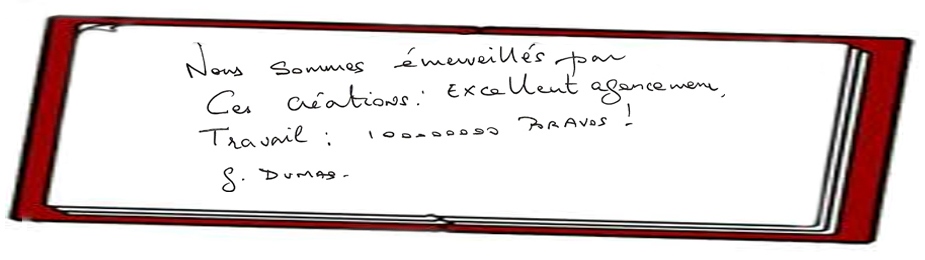 Nous sommes émerveillés par
Ces créations: Excellent agencement,
Travail: 100000000 BRAVOS!
G. DUMAS.